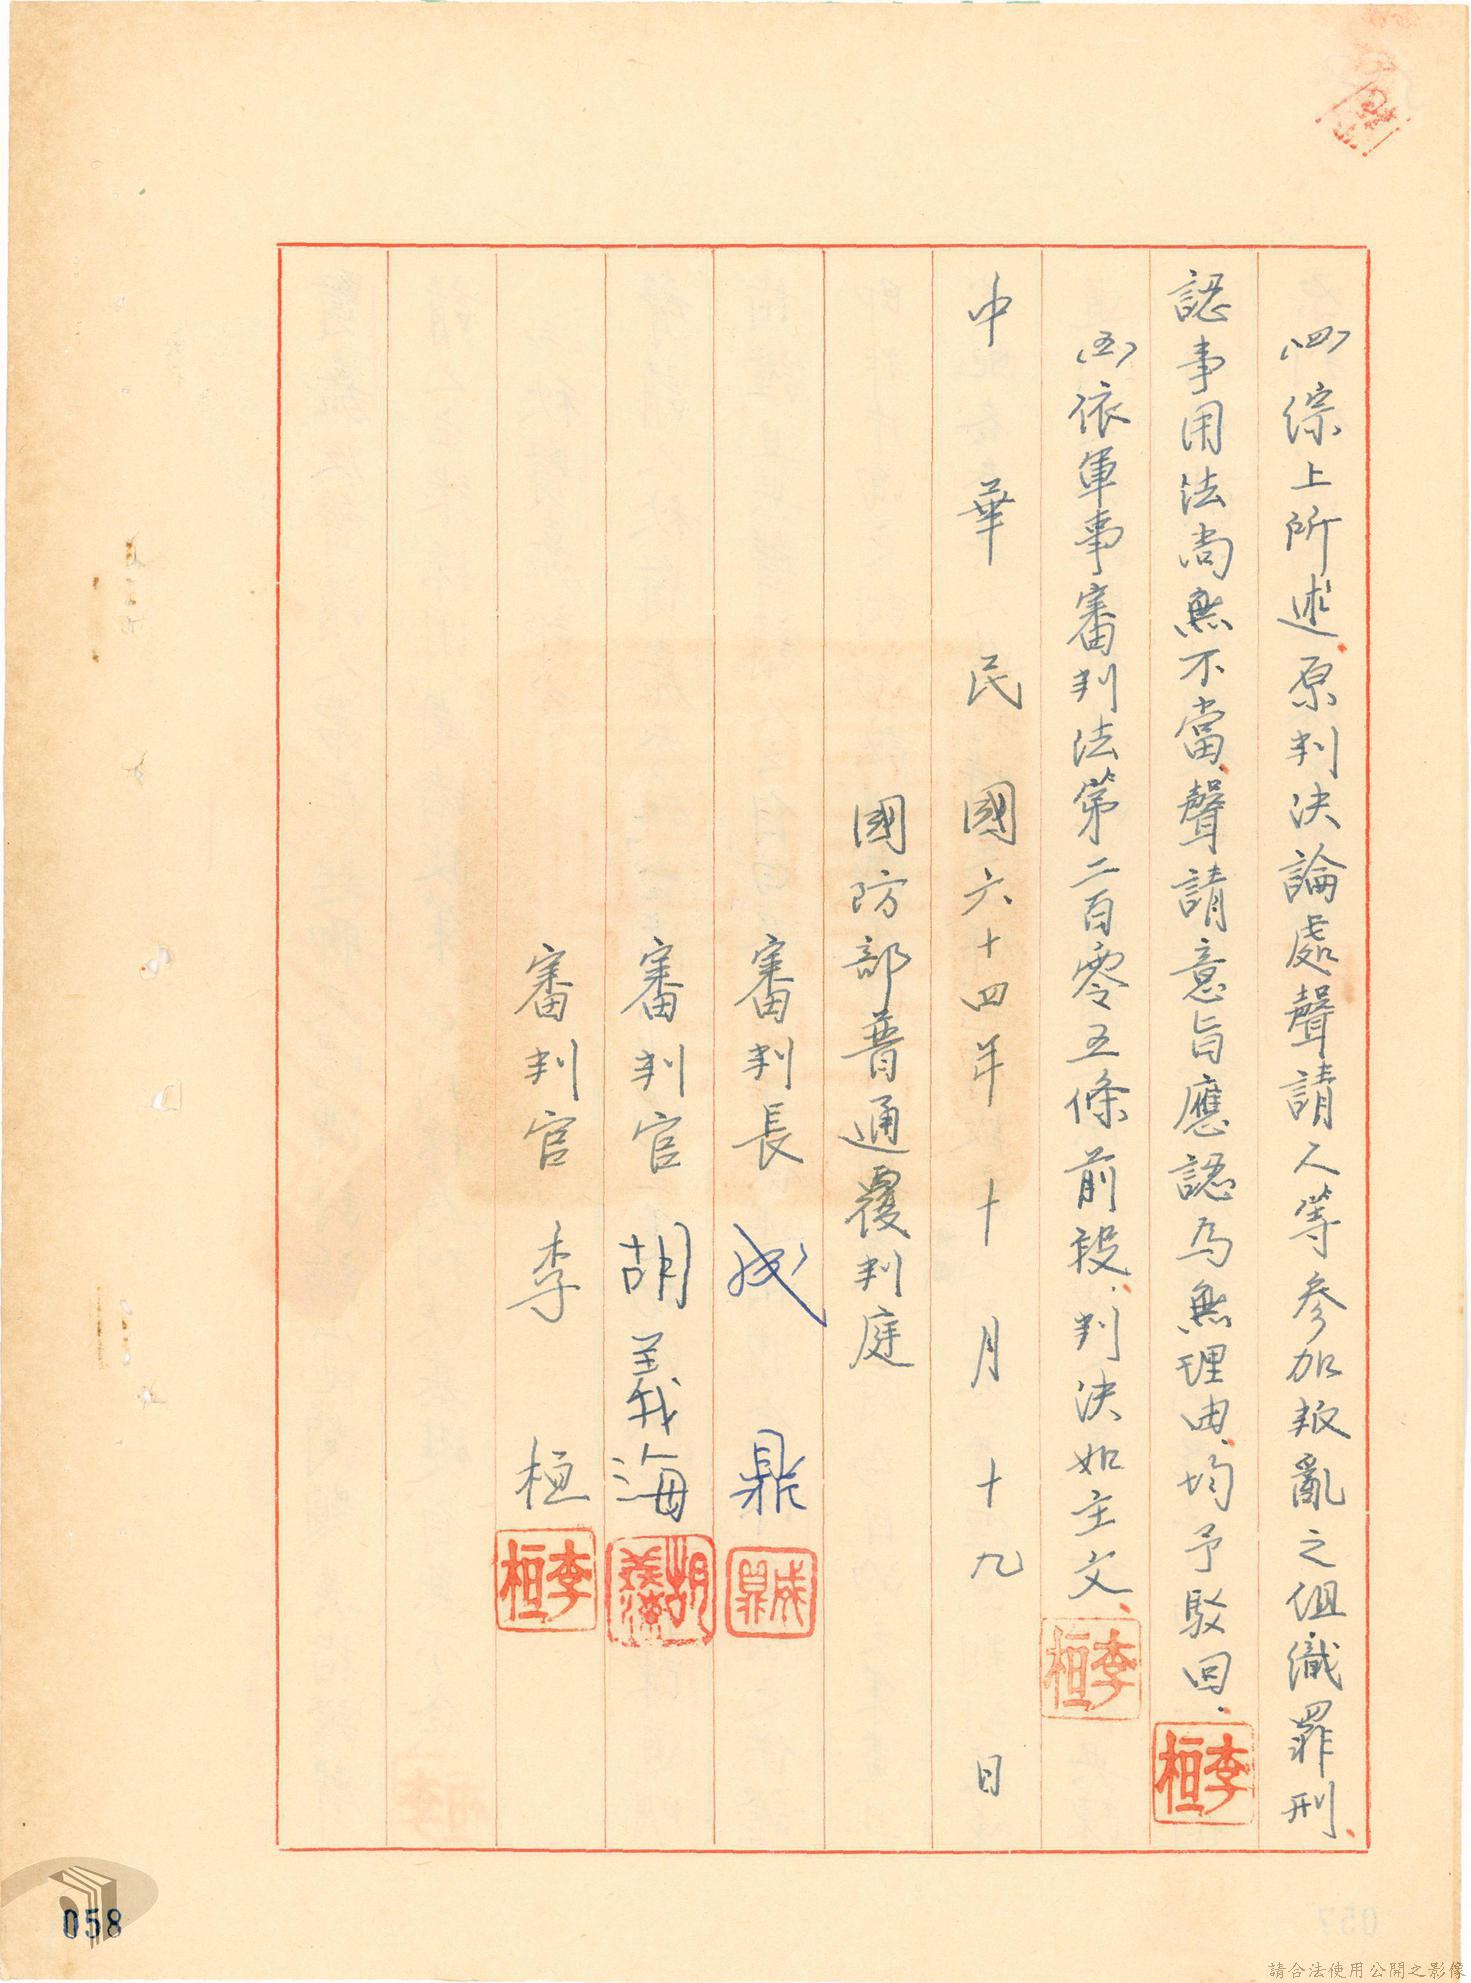 ㈣綜上所述、原判決論處聲請人等參加叛亂之組織罪刑、
認事用法尚無不當、聲請意旨應認為無理由、均予駁回.
李桓
㈤依軍事審判法第二百零五條前段、判決如主文、
李桓
中華民國六十四年十月十九日
國防部普通覆判庭
審判長 成鼎
成鼎
審判官 胡義海
胡義海
審判官 李桓
李桓
058
請合法使用公開之影像